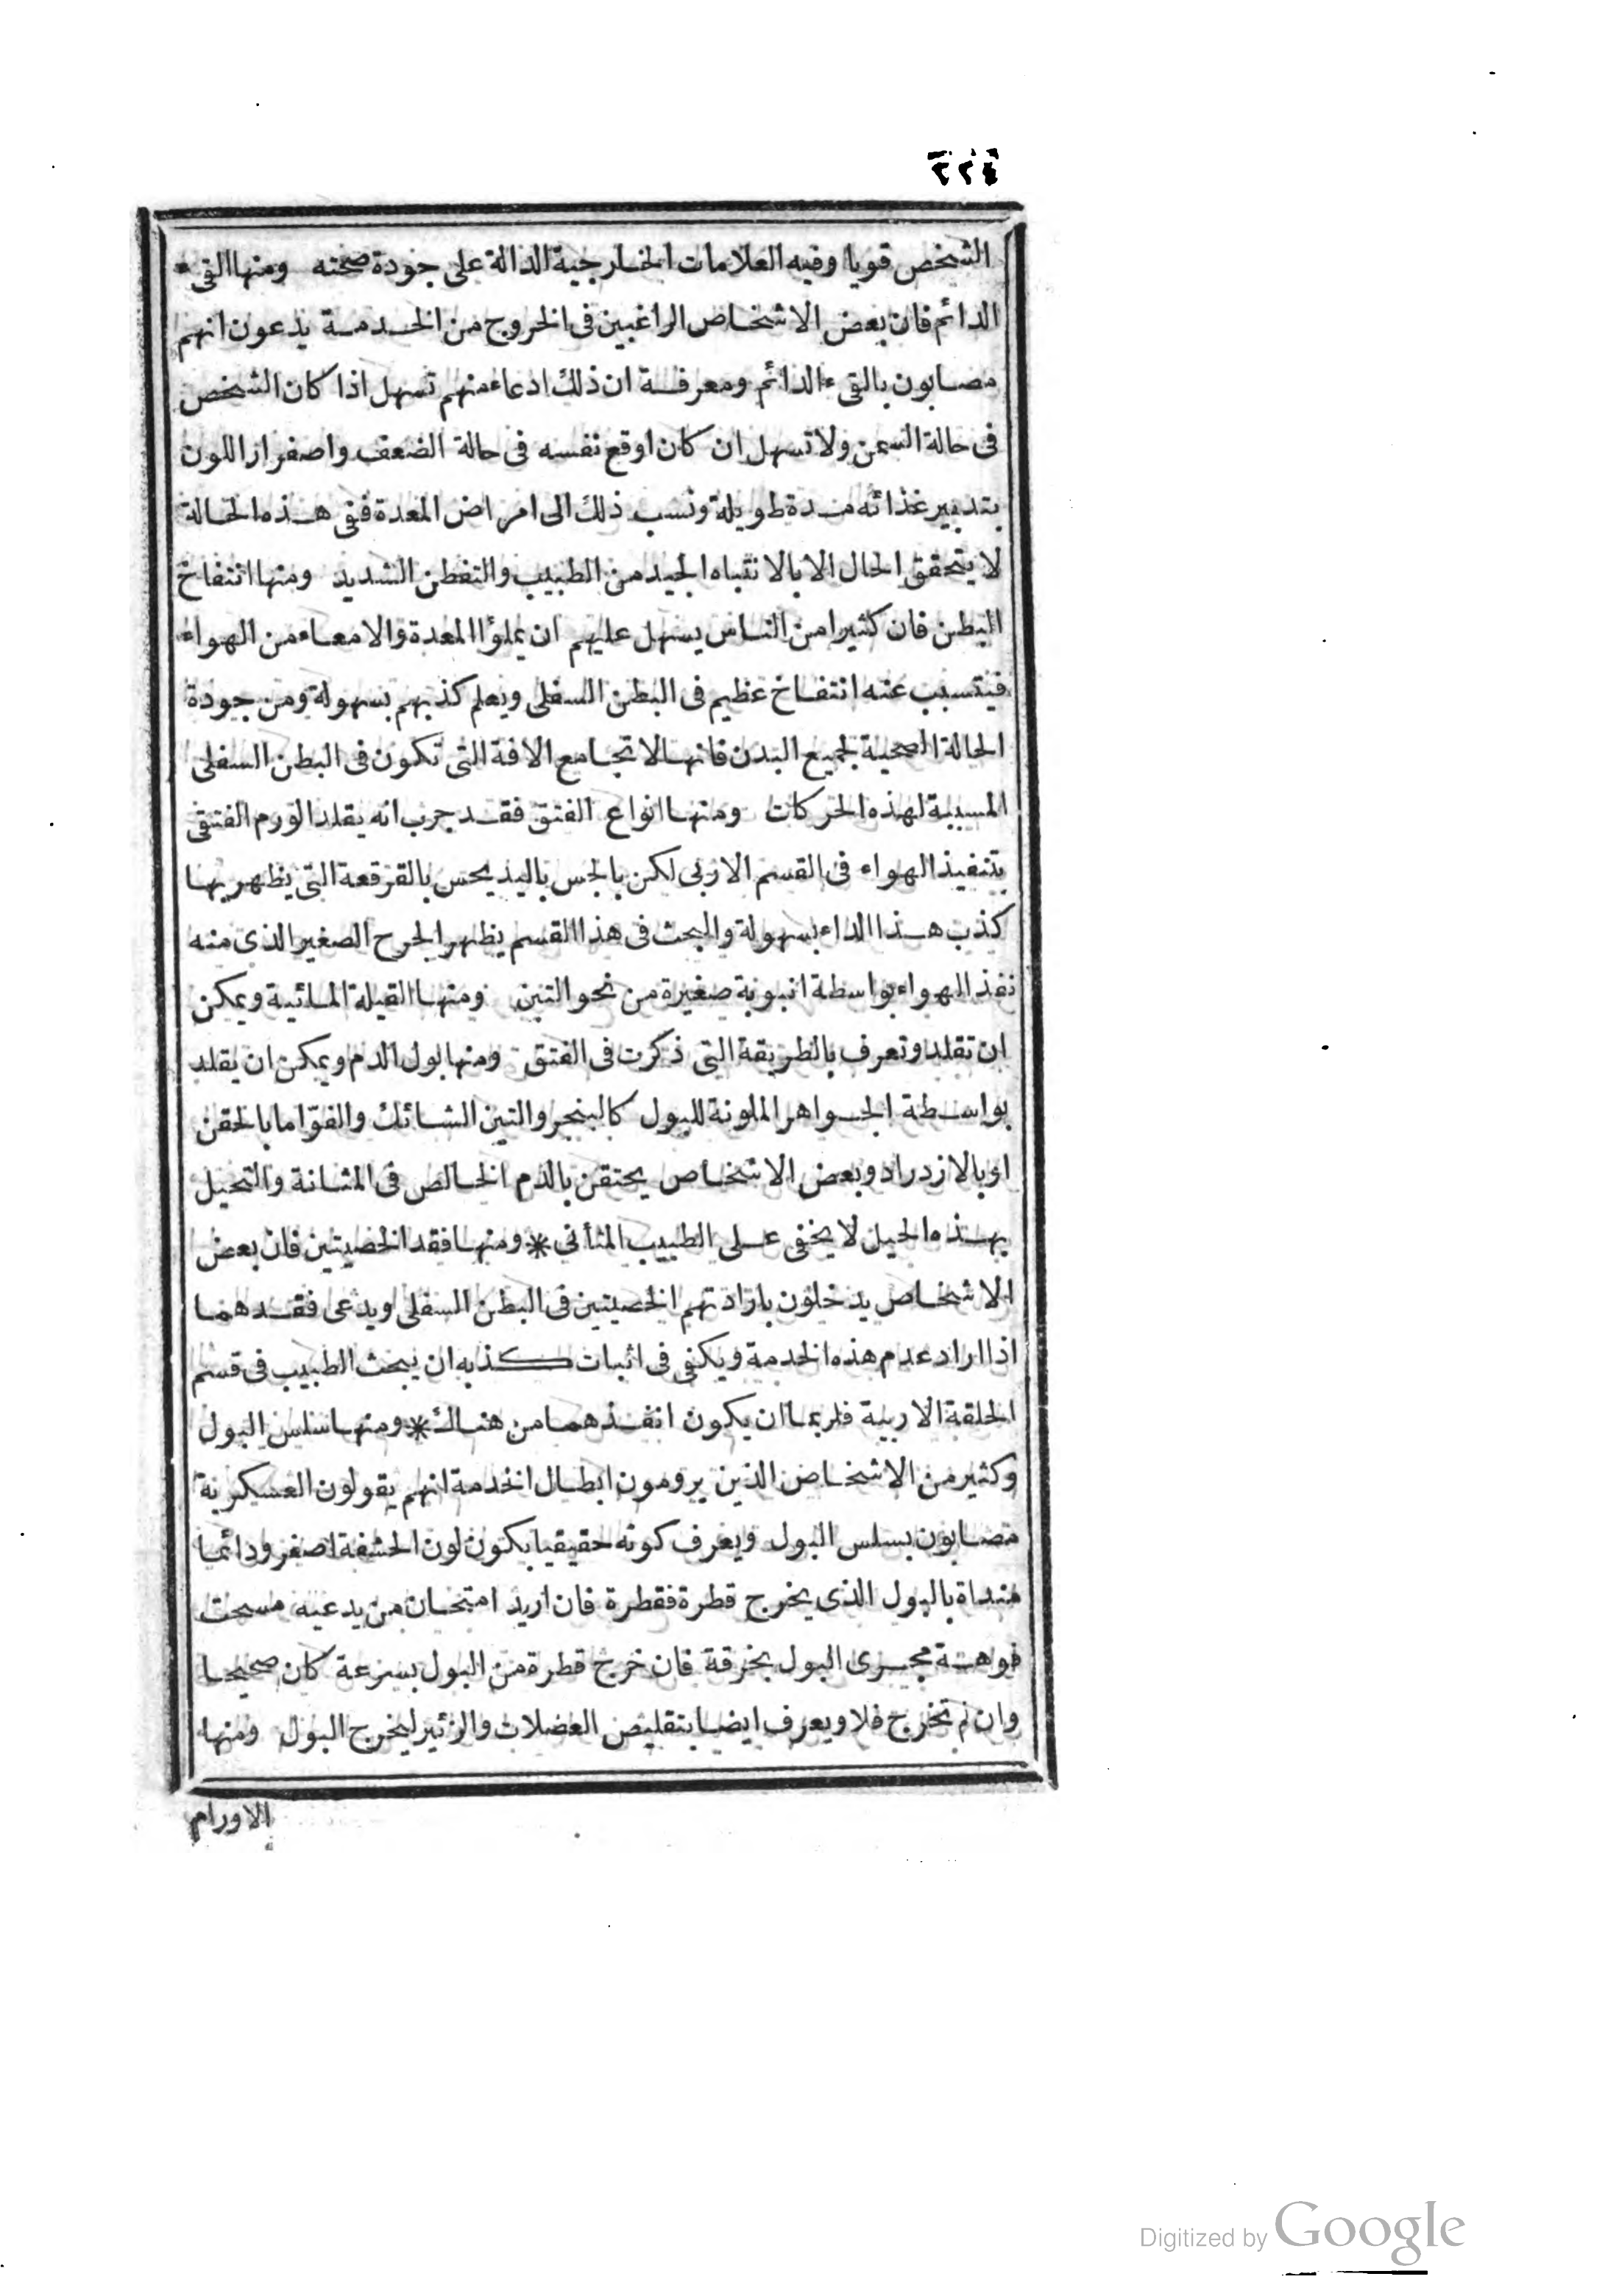 ٤٢٢
الشخص قويا وفيه العلامات الخارجية الدالة على جودة صحته ومنها القىء
الدائم فان بعض الاشخاص الراغبين فى الخروج من الخدمة يدعون انهم
مصابون بالقىء الدائم ومعرفة ان ذلك ادعاء منهم تسهل اذا كان الشخص
فى حالة السمن ولا تسهل ان كان اوقع نفسه فى حالة الضعف واصفرار اللون
بتدبير غذائه مدة طويلة ونسب ذلك الى امراض المعدة ففى هذه الحالة
لا يتحقق الحال الا بالانتباه الجيد من الطبيب والتفطن الشديد ومنها انتفاخ
البطن فان كثيرا من الناس يسهل عليهم ان يملؤا المعدة والامعاء من الهواء
فيتسبب عنه انتفاخ عظيم فى البطن السفلى ويعلم كذبهم بسهولة ومن جودة
الحالة الصحية لجميع البدن فانها لا تجامع الافة التى تكون فى البطن السفلى
المسببة لهذه الحركات ومنها انواع الفتق فقد جرب انه يقلد الورم الفتقى
بتنفيذ الهواء فى القسم الاربى لكن بالجس باليد يحس بالقرقعة التى يظهر بها
كذب هذا الداء بسهولة والبحث فى هذا القسم يظهر الجرح الصغير الذى منه
نفذ الهواء بواسطة انبوبة صغيرة من نحو التبن ومنها القيلة المائية ويمكن
ان تقلد وتعرف بالطريقة التى ذكرت فى الفتق ومنها بول الدم ويمكن ان يقلد
بواسطة الجواهر الملونة للبول كالبنجر والتين الشائك والفوّا اما بالحقن
او بالازدراد وبعض الاشخاص يحتقن بالدم الخالص فى المثانة والتحيل
بهذه الحيل لا يخفى على الطبيب المتأنى * ومنها فقد الخصيتين فان بعض
الاشخاص يدخلون بارادتهم الخصيتين فى البطن السفلى ويدعى فقدهما
اذا اراد عدم هذه الخدمة ويكفى فى اثبات كذبه ان يبحث الطبيب فى قسم
الحلقة الاربية فلربما ان يكون انفذهما من هناك * ومنها سلس البول
وكثير من الاشخاص الذين يرومون ابطال الخدمة انهم يقولون العسكرية
مصابون بسلس البول ويعرف كونه حقيقيا بكون لون الحشفة اصفر ودائما
منداة بالبول الذى يخرج قطرة فقطرة فان اريد امتحان من يدعيه مسحت
فوهة مجرى البول بخرقة فان خرج قطرة من البول بسرعة كان صحيحا
وان لم تخرج فلا ويعرف ايضا بتقليص العضلات والزئير ليخرج البول ومنها
الاورام
Digitized by Google